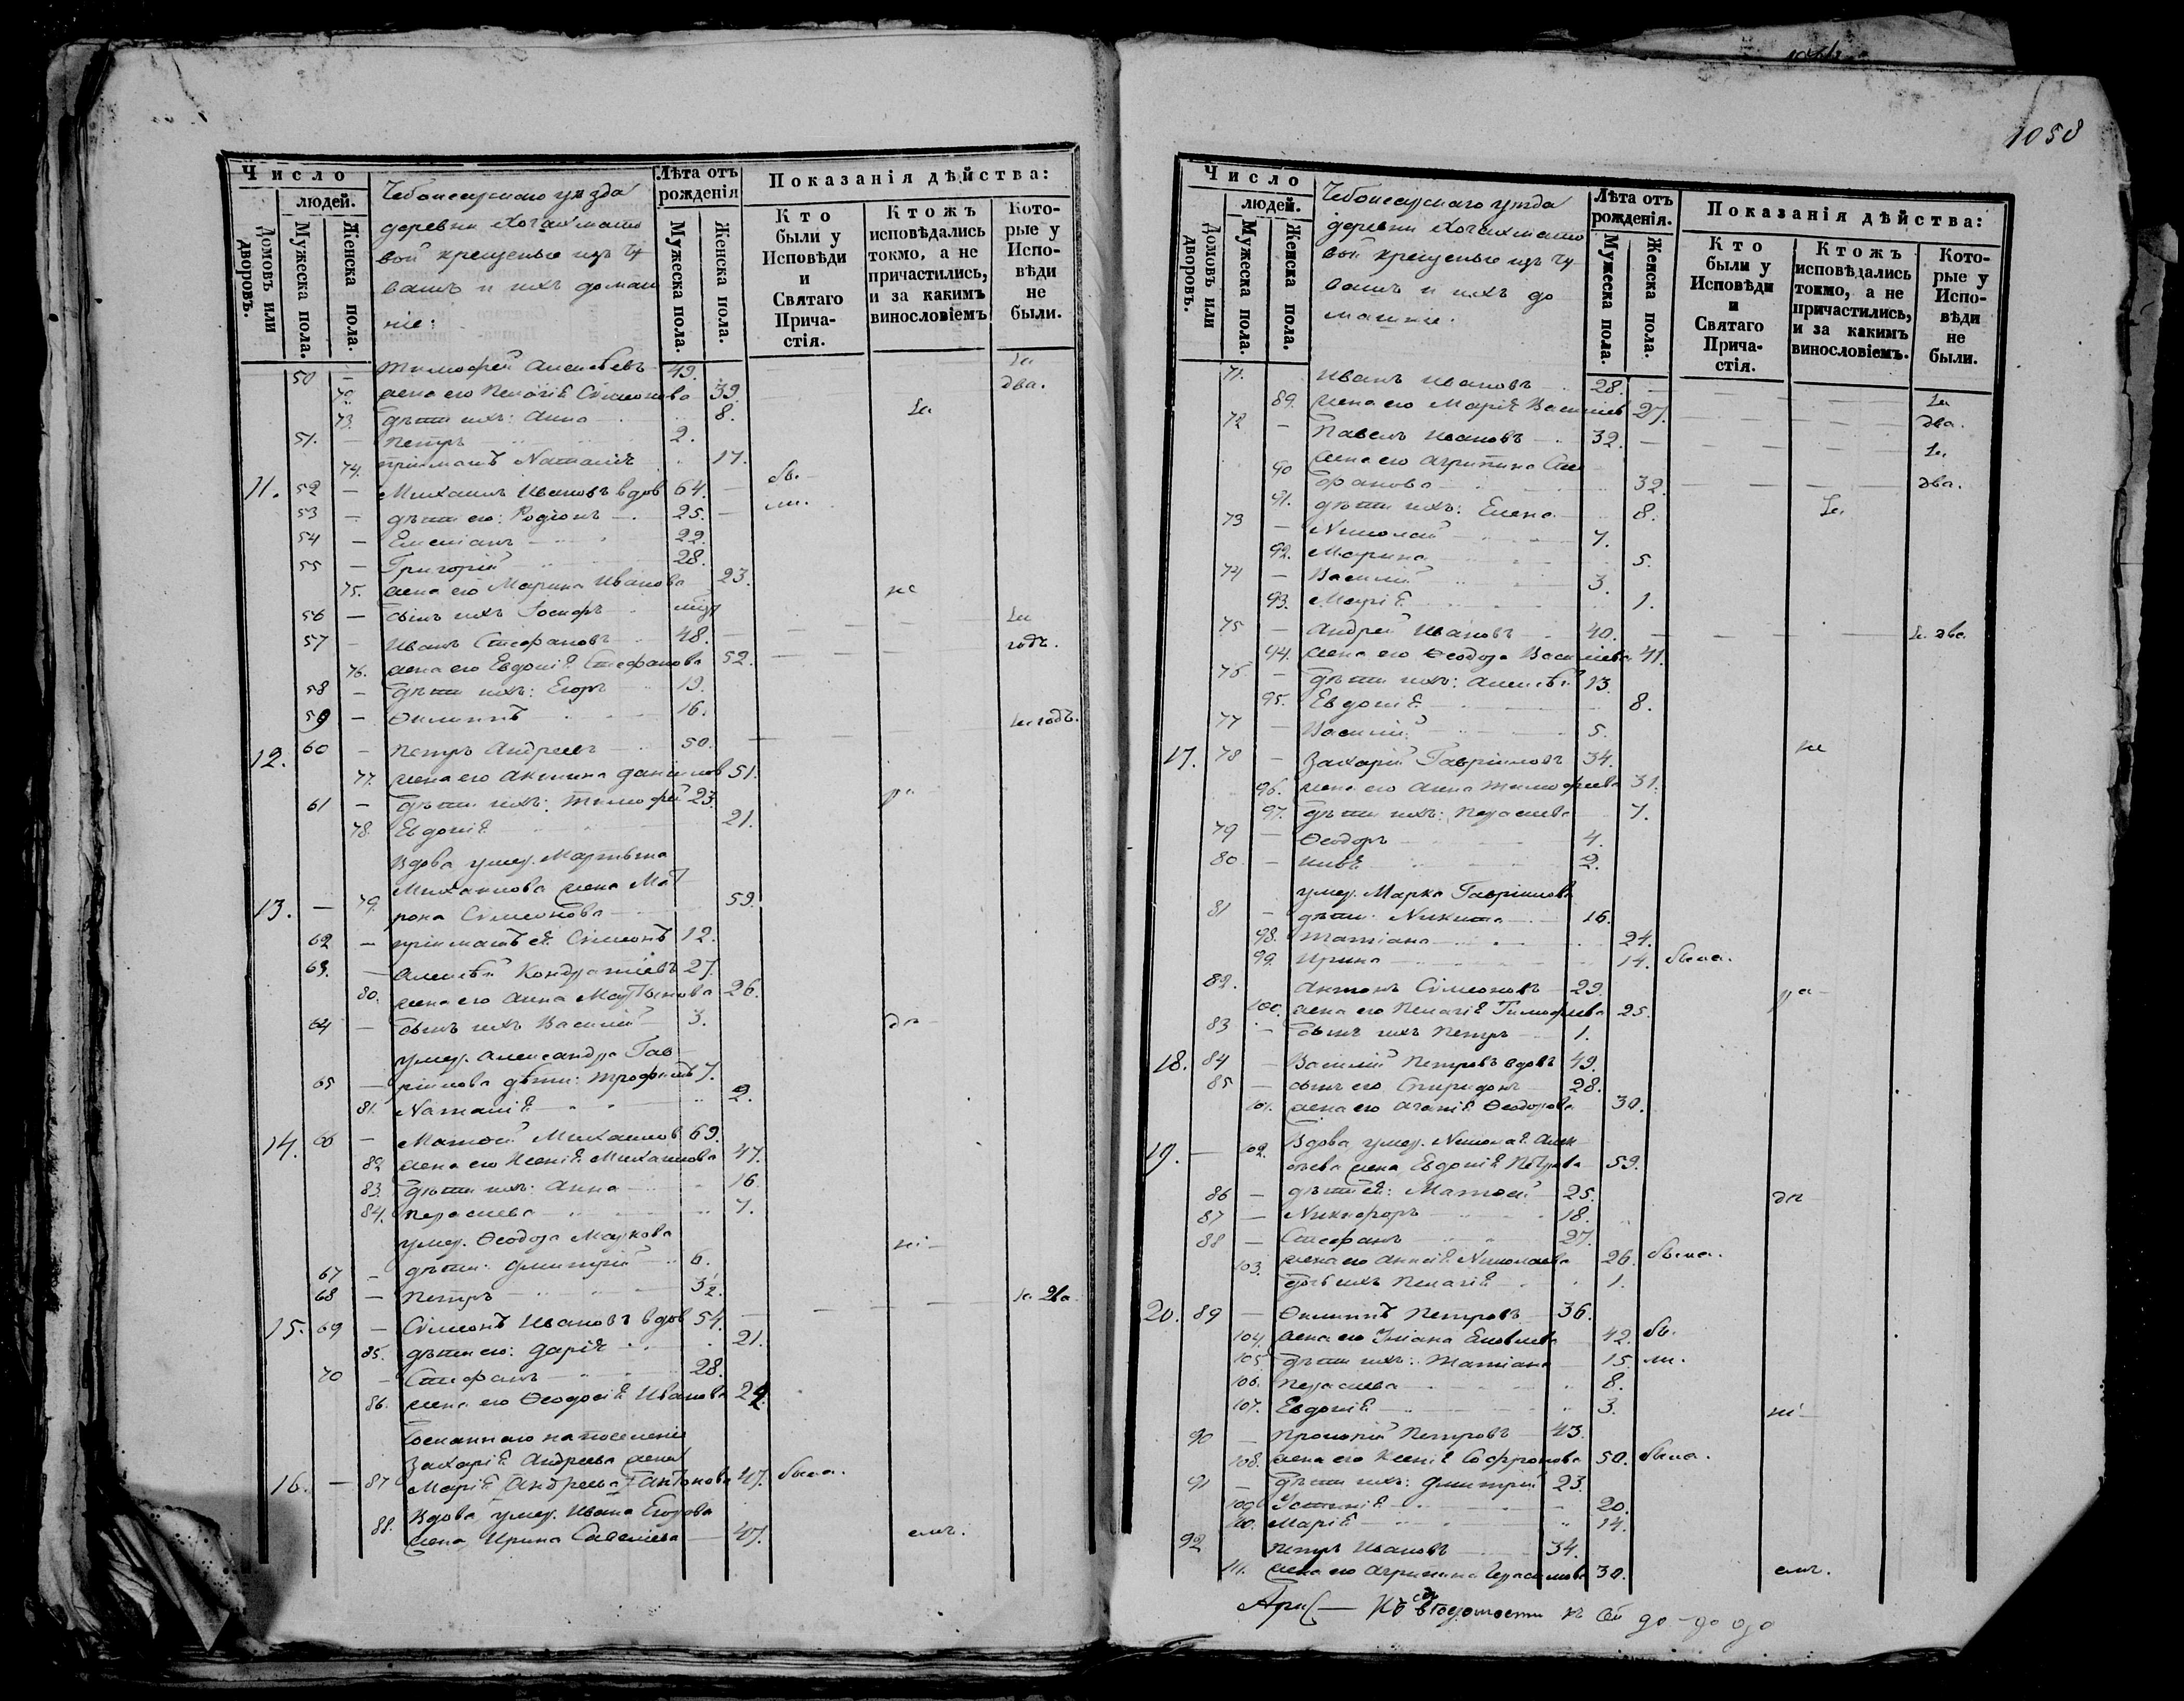 1058
Число
людей.
Домовъ или дворовъ.
Мужеска пола.
Женска пола.
Чебоксарскаго уѣзда
деревни
вой крещеные изъ чу
вашъ и ихъ домаш
ніе:
Лѣта отъ рожденія
Мужеска пола.
Женска пола.
Показанія дѣйства:
Кто были у Исповѣди и Святаго Прича- стія.
Ктожъ исповѣдались токмо, а не причастились, и за какимъ винословіемъ
Кото- рые у Испо- вѣди не были.
50 — Тимофей Алексѣевъ 49.
72. жена его Пелагія Симеонова 39. два.
73. дѣти ихъ: Анна 8.
51. — Петръ 2.
74. Наталія 17.
11. 52 — Михаилъ Ивановъ вдов 64. — бы.
53 — дѣти его: Родіонъ 25. — ли.
54 — Емеліанъ 22.
55 — Григорій 28.
75. жена его Марина Иванова 23.
56 — сынъ ихъ Іосифъ
57 — Иванъ Стефановъ 48.
76. жена его Евдокія Стефанова 52. годъ.
58 — дѣти ихъ: Егоръ 19.
59 — Филиппъ 16.
12. 60 — Петръ Андреевъ 50.
77. жена его Акилина Данилов 51.
61 — дѣти ихъ: Тимофей 23.
78. Евдокія 21.
Вдова умер. Мартына
Михаилова жена Мат
13. — 79. рона Симеонова 59.
62 — Симеонъ 12.
63. — Алексѣй Кондратіевъ 27.
80. жена его Анна Мартынова 26.
64 — сынъ ихъ Василій 3.
умер. Александра Гав
65 — ріилова дѣти: Трофимъ 7.
81. Наталія 2.
14. 66 — Матвѣй Михаилов 69.
82 жена его Ксенія Михаилова 47.
83. дѣти ихъ: Анна 16.
84. Параскева 7.
умер. Ѳеодора Маркова
67 — дѣти: Димитрій 6.
68 — Петръ 3½.
15. 69 — Симеонъ Ивановъ вдов 54.
85. дѣти его: Дарія 21.
70 — Стефанъ 28.
86. жена его Ѳеодосія Иванова 24.
Сосланнаго на поселеніе
Захарія Андреева жена
16. — 87 Марія Антонова 47. была.
Вдова умер. Ивана Егорова
88. жена Ирина Савелiева 47.
Число
людей.
Домовъ или дворовъ.
Мужеска пола.
Женска пола.
Чебоксарскаго уѣзда
деревни
вой крещеные изъ чу
вашъ и ихъ до
машніе.
Лѣта отъ рожденія.
Мужеска пола.
Женска пола.
Показанія дѣйства:
Кто были у Исповѣди и Святаго Прича- стія.
Ктожъ исповѣдались токмо, а не причастились, и за какимъ винословіемъ.
Кото- рые у Испо- вѣди не были.
71. Иванъ Ивановъ 28.
89. жена его Марія Василіев 27. два.
72 — Павелъ Ивановъ 32.
жена его Агрипина Сте
90 фанова 32. два.
91. дѣти ихъ: Елена 8.
73 — Николай 7.
92. Марина 5.
74 — Василій 3.
93. Марія 1.
75 — Андрей Ивановъ 40.
94. жена его Ѳеодора Василіева 41.
76 — дѣти ихъ: Алексѣй 13.
95. Евдокія 8.
77 — Василій 5.
17. 78 — Захарій Гавріиловъ 34.
96. жена его Анна Тимофеева 31.
97. дѣти ихъ: Параскева 7.
79 — Ѳеодоръ 4.
80 — 2.
умер. Марка Гавріилова
81 — дѣти: Никита 16.
98. Татіана 24.
99. Ирина 14. была.
82. Антонъ Симеоновъ 29.
100. жена его Пелагія Тимофеева 25.
83 — сынъ ихъ Петръ 1.
18. 84 — Василій Петровъ вдовъ 49.
85 — сынъ его Спиридонъ 28.
101. жена его Агафія Ѳеодорова 30.
Вдова умер. Николая Алек
19. — 102. сѣева жена Евдокія Петрова 59.
86 — дѣти ея: Матвѣй 25.
87 — Никифоръ 18.
88 — Стефанъ 27.
103. Николаева 26. была.
дочь ихъ Пелагія 1.
20. 89 — Филиппъ Петровъ 36.
104. жена его Уліана Яковлева 42. бы.
105. дѣти ихъ: Татіана 15. ли.
106. Параскева 8.
107. Евдокія 3.
90 — Прокопій Петровъ 43.
108. жена его Ксенія Софронова 50. была.
91 — дѣти ихъ: Димитрій 23.
109. Устинія 20.
110. Марія 14.
92 Петръ Ивановъ 34.
111. жена его Агрипина Герасимова 30.